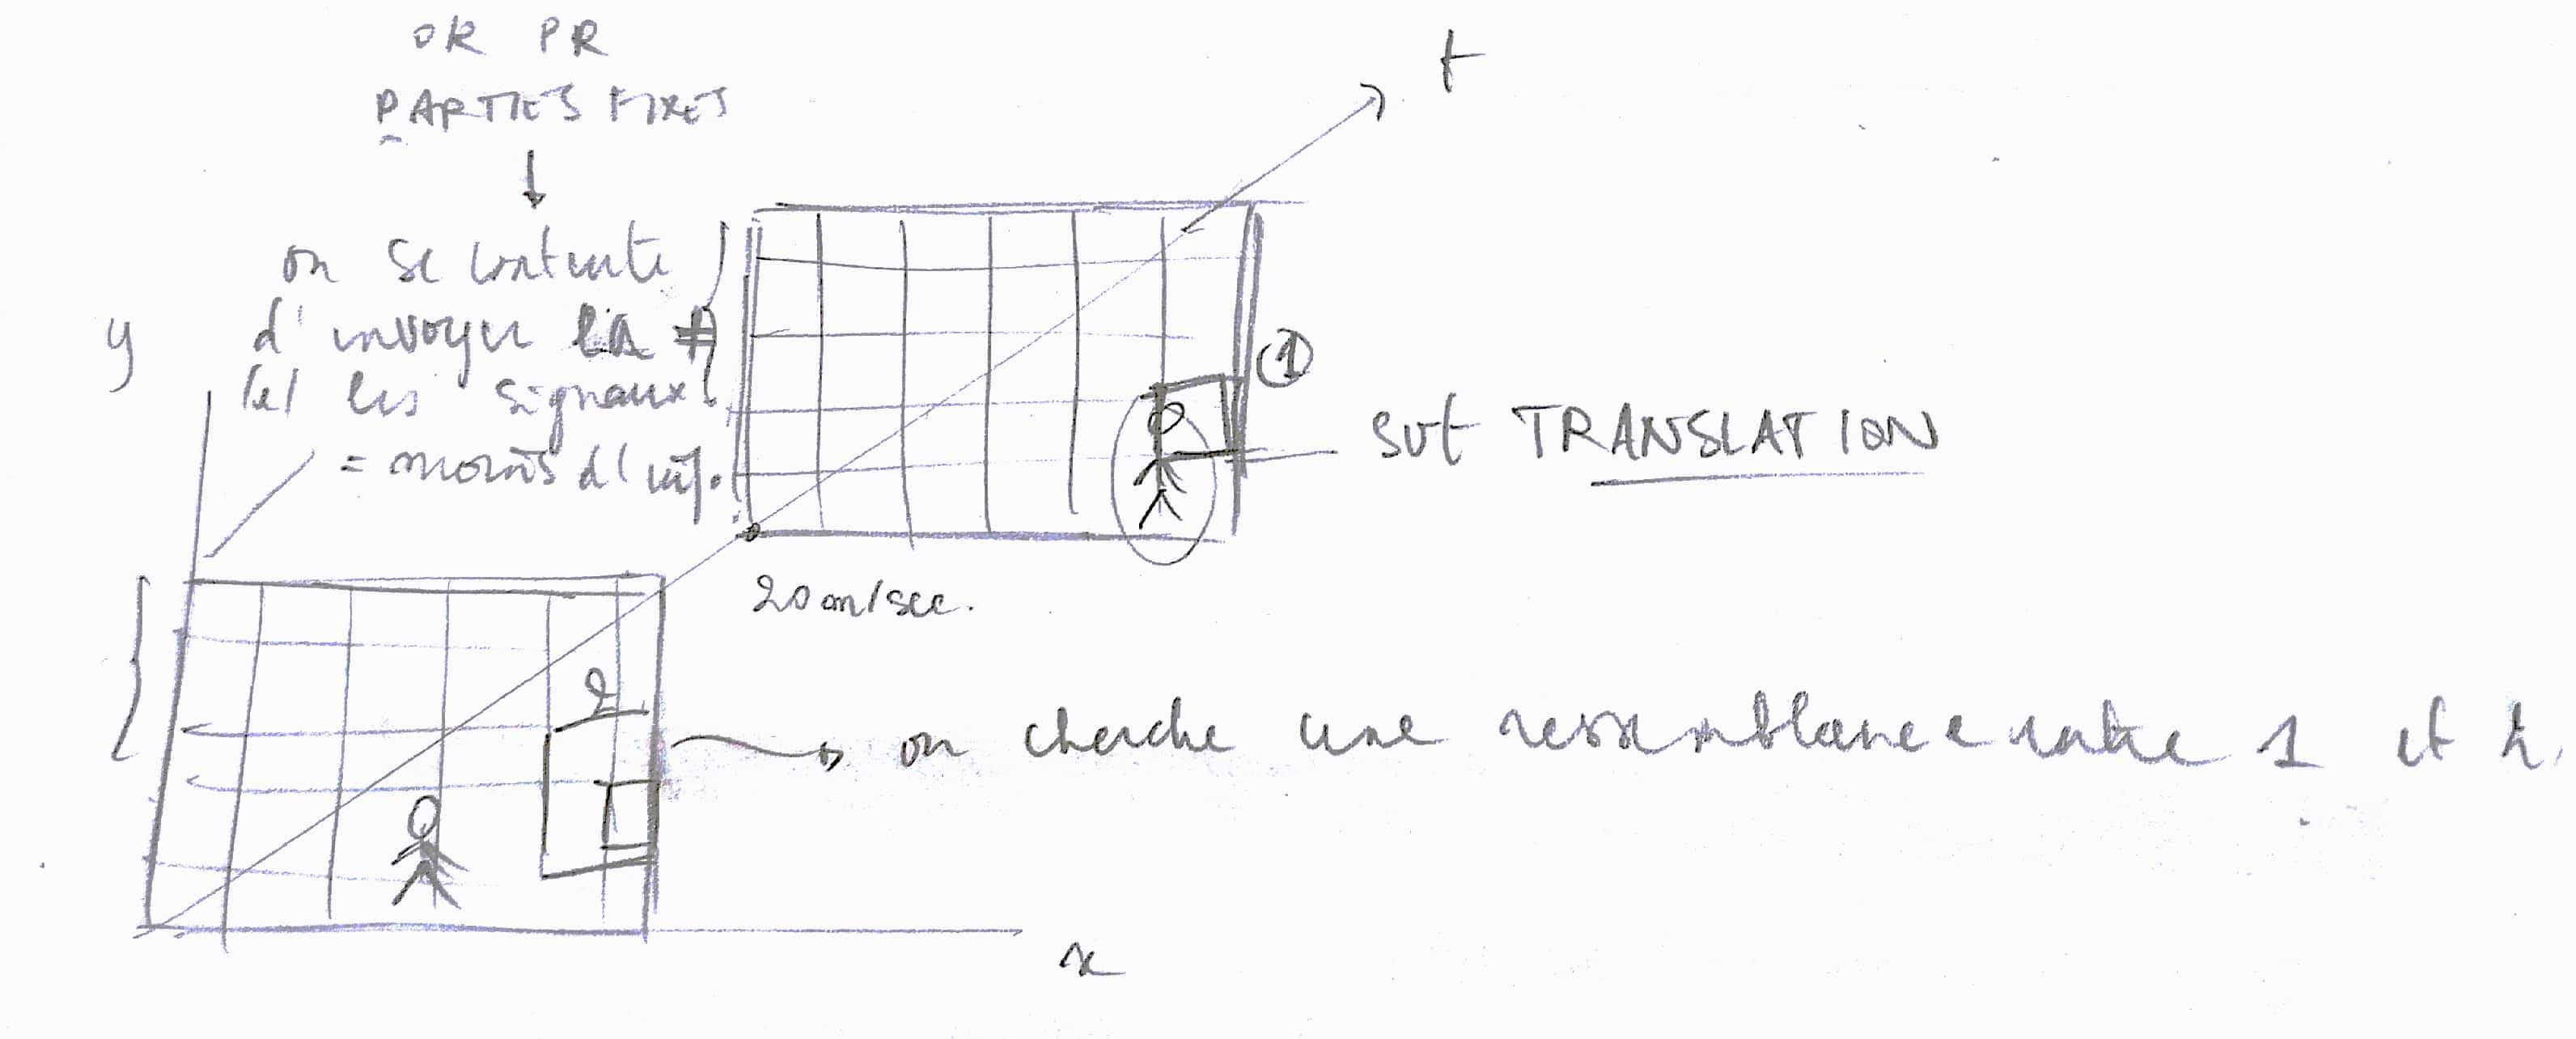 OK PR
PARTIES FIXES
t
on se contente
d'envoyer LA ≠
y
les signaux
= moins d'inf.
①
svt TRANSLATION
20 m/sec.
2
on cherche une ressemblance entre 1 et 2.
x